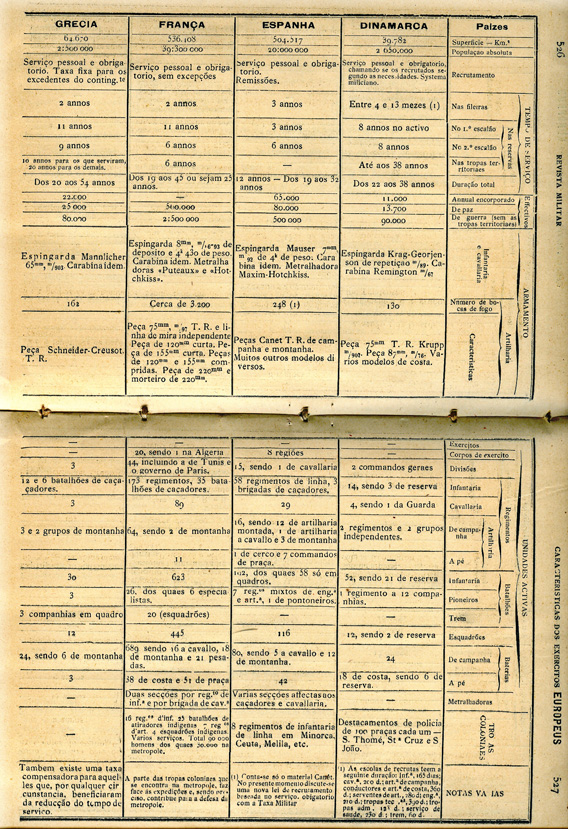 526
REVISTA MILITAR
GRECIA
FRANÇA
ESPANHA
DINAMARCA
Paizes
64.670
536.408
504.517
39.782
Superficie — Km.²
2:500 000
39:300 000
20:000 000
2 650.000
População absoluta
Serviço pessoal e obriga-
torio. Taxa fixa para os
excedentes do conting.te
Serviço pessoal e obriga-
torio, sem excepções
Serviço pessoal e obriga-
torio.
Remissões.
Serviço pessoal e obrigatorio,
chamando se os recrutados se-
gundo as necessidades. Systema
miliciano.
Recrutamento
TEMPO DE SERVIÇO
2 annos
2 annos
3 annos
Entre 4 e 13 mezes (1)
Nas fileiras
Nas reservas
11 annos
11 annos
3 annos
8 annos no activo
No 1.º escalão
9 annos
6 annos
6 annos
8 annos
No 2.º escalão
10 annos para os que serviram,
20 annos para os demais.
6 annos
—
Até aos 38 annos
Nas tropas ter-
ritoriaes
Dos 20 aos 54 annos
Dos 19 aos 45 ou sejam 25
annos.
12 annos — Dos 19 aos 32
annos.
Dos 22 aos 38 annos
Duração total
Effectivos
22.000
—
65.000
11.000
Annual encorporado
25 000
500.000
80.000
13.700
De paz
80.000
2:500 000
500 000
90.000
De guerra (sem as
tropas territoriaes)
ARMAMENTO
Infantaria
e cavallaria
Espingarda Mannlicher
65mm, m/903. Carabina idem.
Espingarda 8mm, m/86-93 de
deposito e 4k 430 de peso.
Carabina idem. Metralha
doras «Puteaux» e «Hot-
chkiss».
Espingarda Mauser 7mm,
m/92 de 4k de peso. Cara
bina idem. Metralhadora
Maxim-Hotchkiss.
Espingarda Krag-Georjen-
son de repetição m/89. Ca-
rabina Remington m/67
162
Cerca de 3.200
248 (1)
130
Numero de bo-
cas de fogo
Artilharia
Caracteristicas
Peça Schneider-Creusot.
T. R.
Peça 75mm, m/97 T. R. e li-
nha de mira independente
Peça de 120mm curta. Pe-
ça de 155mm curta. Peças
de 120mm e 155mm com-
pridas. Peça de 220mm e
morteiro de 220mm.
Peças Canet T. R. de cam-
panha e montanha.
Muitos outros modelos di
versos.
Peça 75mm T. R. Krupp
m/902. Peça 87mm, m/76. Va-
rios modelos de costa.
CARACTERISTICAS DOS EXERCITOS EUROPEUS
527
UNIDADES ACTIVAS
—
—
—
—
Exercitos
—
20, sendo 1 na Algeria
8 regiões
—
Corpos de exercito
3
44, incluindo a de Tunis e
o governo de Paris.
15, sendo 1 de cavallaria
2 commandos geraes
Divisões
Regimentos
12 e 6 batalhões de caça-
çadores.
173 regimentos, 35 bata
lhões de caçadores.
58 regimentos de linha, 3
brigadas de caçadores.
14, sendo 3 de reserva
Infantaria
3
89
29
4, sendo 1 da Guarda
Cavallaria
Artilharia
3 e 2 grupos de montanha
64, sendo 2 de montanha
16, sendo 12 de artilharia
montada, 1 de artilharia
a cavallo e 3 de montanha
2 regimentos e 2 grupos
independentes.
De campa-
nha
—
11
1 de cerco e 7 commandos
de praça.
—
A pé
Batalhões
30
623
dos quaes 58 só em
quadros.
52, sendo 21 de reserva
Infantaria
3
26, dos quaes 6 especia
listas.
7 reg.os mixtos de eng.a
e art.a, 1 de pontoneiros.
1 regimento a 12 compa-
nhias.
Pioneiros
3 companhias em quadro
20 (esquadrões)
—
—
Trem
12
445
116
12, sendo 2 de reserva
Esquadrões
Baterias
24, sendo 6 de montanha
689 sendo 16 a cavallo, 18
de montanha e 21 pesa-
das.
80, sendo 5 a cavallo e 12
de montanha.
24
De campanha
3
38 de costa e 51 de praça
42
18 de costa, sendo 6 de
reserva.
A pé
—
Duas secções por reg.to de
inf.a e por brigada de cav.a
Varias secções affectas aos
caçadores e cavallaria.
—
Metralhadoras
COLONIAES
—
16 reg.os d'inf. 23 batalhões de
atiradores indigenas 7 reg.os
d'art. 4 esquadrões indigenas.
Varios serviços. Total 90 000
homens dos quaes 30.000 na
metropole.
8 regimentos de infantaria
de linha em Minorca,
Ceuta, Melilla, etc.
Destacamentos de policia
de 100 praças cada um —
S. Thomé, St.a Cruz e S
João.
Tambem existe uma taxa
compensadora para aquel-
les que, por qualquer cir
cunstancia, beneficiaram
da reducção do tempo de
serviço.
A parte das tropas coloniaes que
se encontra na metropole, faz
face ás expedições e, sendo pre-
ciso, contribue para a defesa da
metropole.
(1) Conta-se só o material Canet.
No presente momento discute-se
uma nova lei de recrutamento
baseada no serviço obrigatorio
com a Taxa Militar
(1) As escolas de recrutas teem a
seguinte duração: Inf.a, 165 dias;
cav.a, 210 d.; art.a de campanha,
conductores e art.a de costa, 360
d.; serventes de art., 280 d.; eng.a,
210 d.; tropas tec.as, 390 d.; tro-
pas adm., 125 d.; serviço de
saude, 230 d.; trem, 60 d.
NOTAS VARIAS